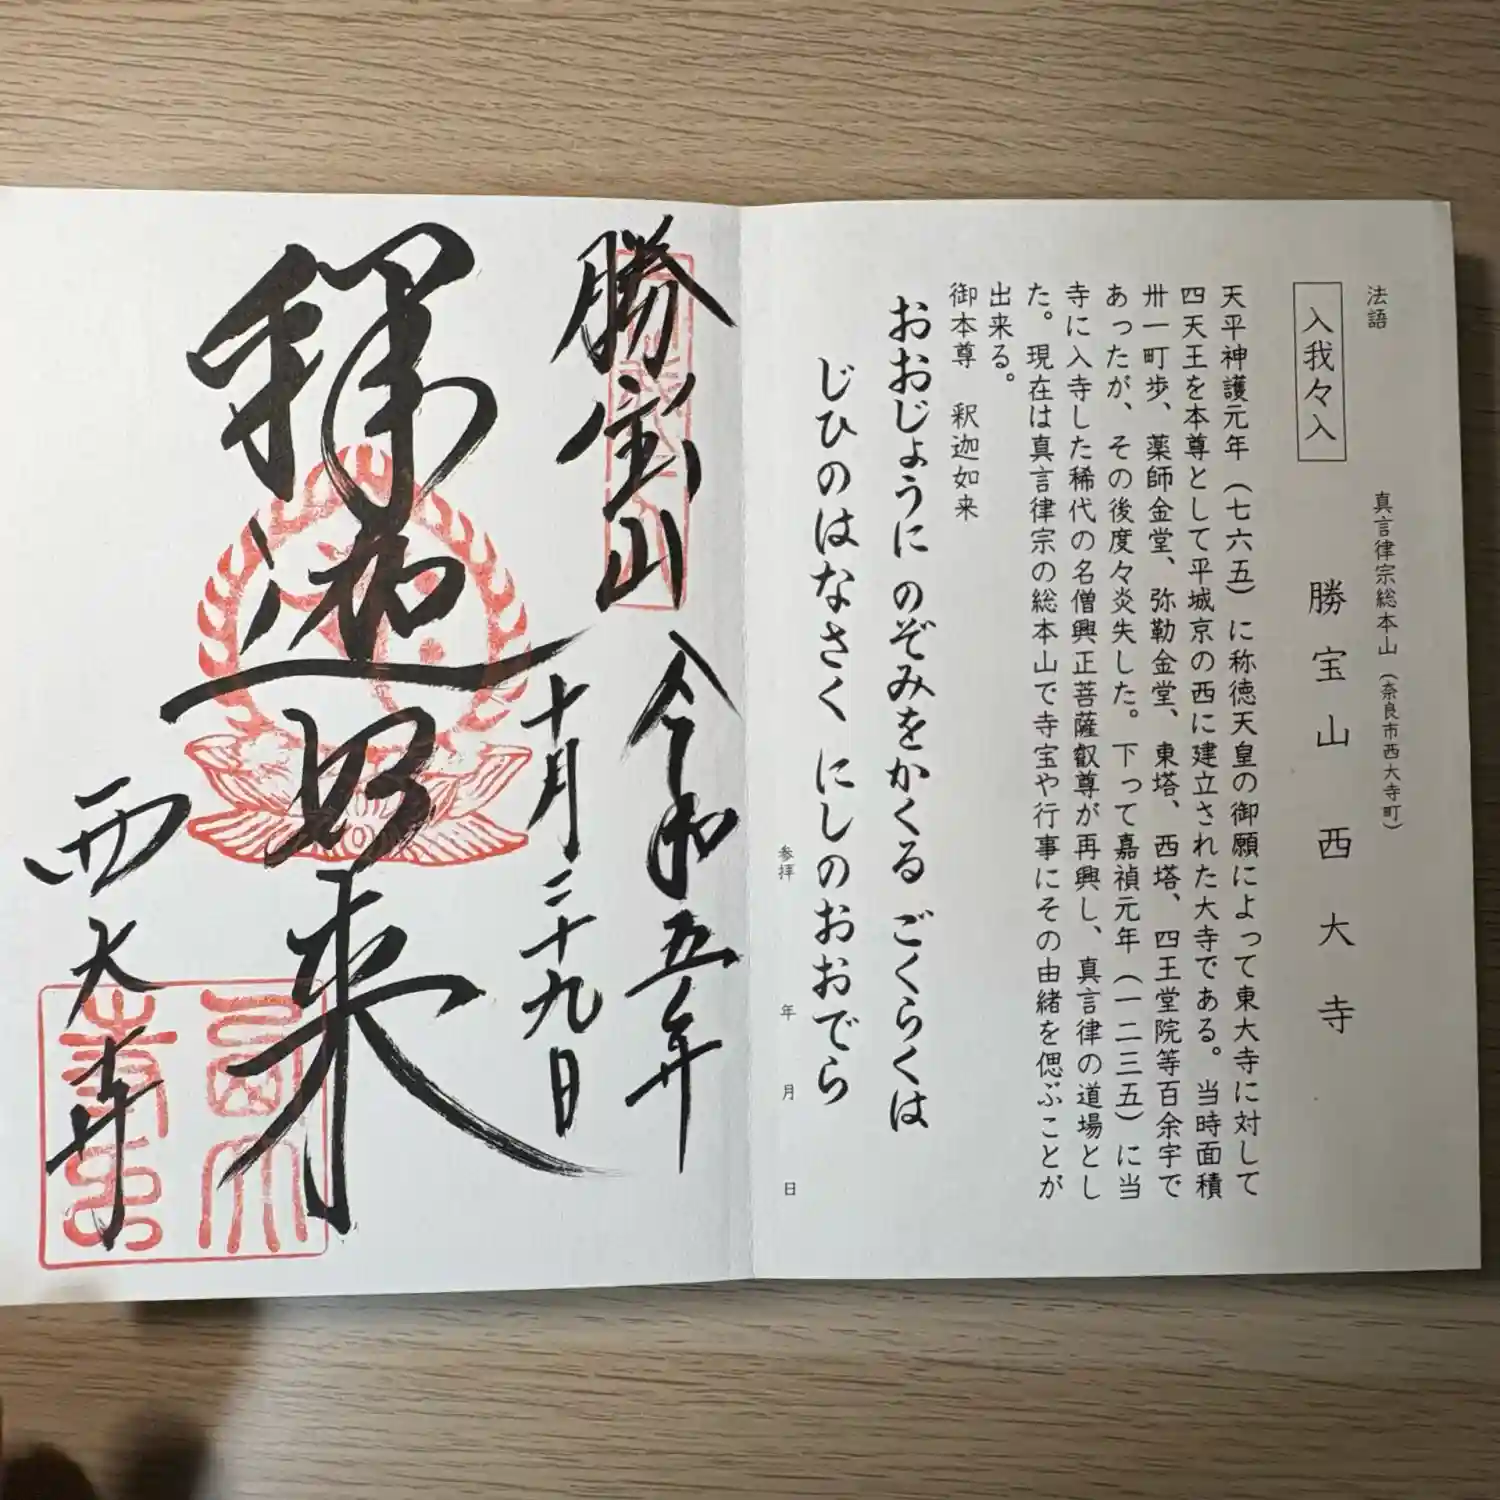 法語
入我々入
真言律宗総本山（奈良市西大寺町）
勝宝山 西大寺
天平神護元年（七六五）に称徳天皇の御願によって東大寺に対して
四天王を本尊として平城京の西に建立された大寺である。当時面積
卅一町歩、薬師金堂、弥勒金堂、東塔、西塔、四王堂院等百余宇で
あったが、その後度々炎失した。下って嘉禎元年（一二三五）に当
寺に入寺した稀代の名僧興正菩薩叡尊が再興し、真言律の道場とし
た。現在は真言律宗の総本山で寺宝や行事にその由緒を偲ぶことが
出来る。
御本尊 釈迦如来
おおじょうに のぞみをかくる ごくらくは
じひのはなさく にしのおおでら
参拝 年 月 日
勝宝山
令和五年
十月二十九日
釋迦如来
西大寺